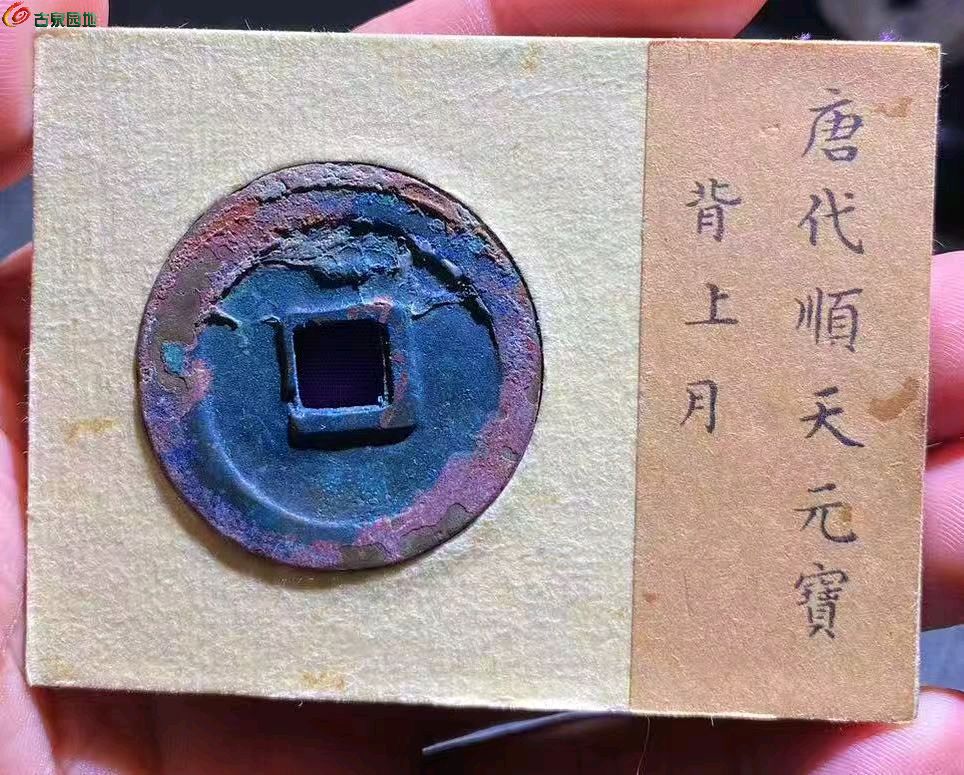 古泉园地
唐代順天元寶
背上月